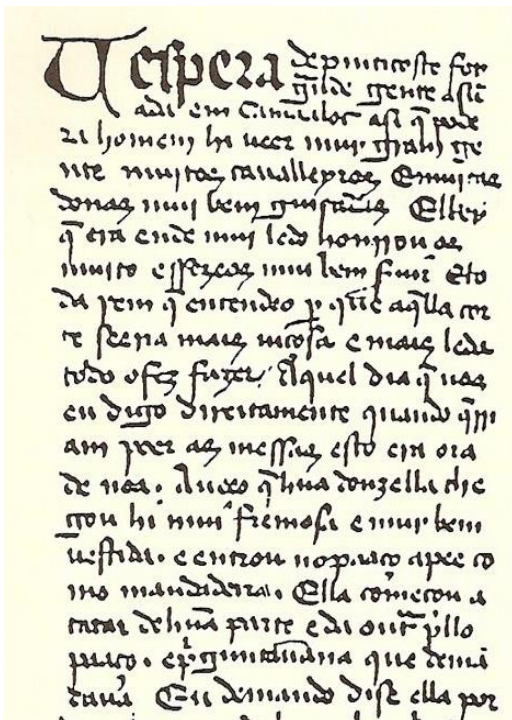 Vespera de pinticoste foy
g̃ade gente asũ
ada em Camaaloc asi q̃ pode
ra homem hi ueer muy gram gẽ
nte muitos cavalleyros E muitas
donas mui bem guisadas Elrey
q̃ era ende mui ledo honrrou os
muito e fferzeos mui bem suir̃ Eto
da rem q̃ entendeo p̱ que aq̃lla cor
te seeria mais uiçosa e mais leda
todo o fez fazer. Aquel dia q̃ uos
eu digo direitamente quando q̃ri
am poer as messas esto era ora
de noa. Aueo q̃ hũa donzella che
gou hi mui fremosa e muy bem
uestida. e entrou no paaço a pee co
mo mandadeira. Ella começou a
catar de hũa parte e da out̃ pello
paaço. e p̃guntauãna que demã
daua Eu demando dise ella por